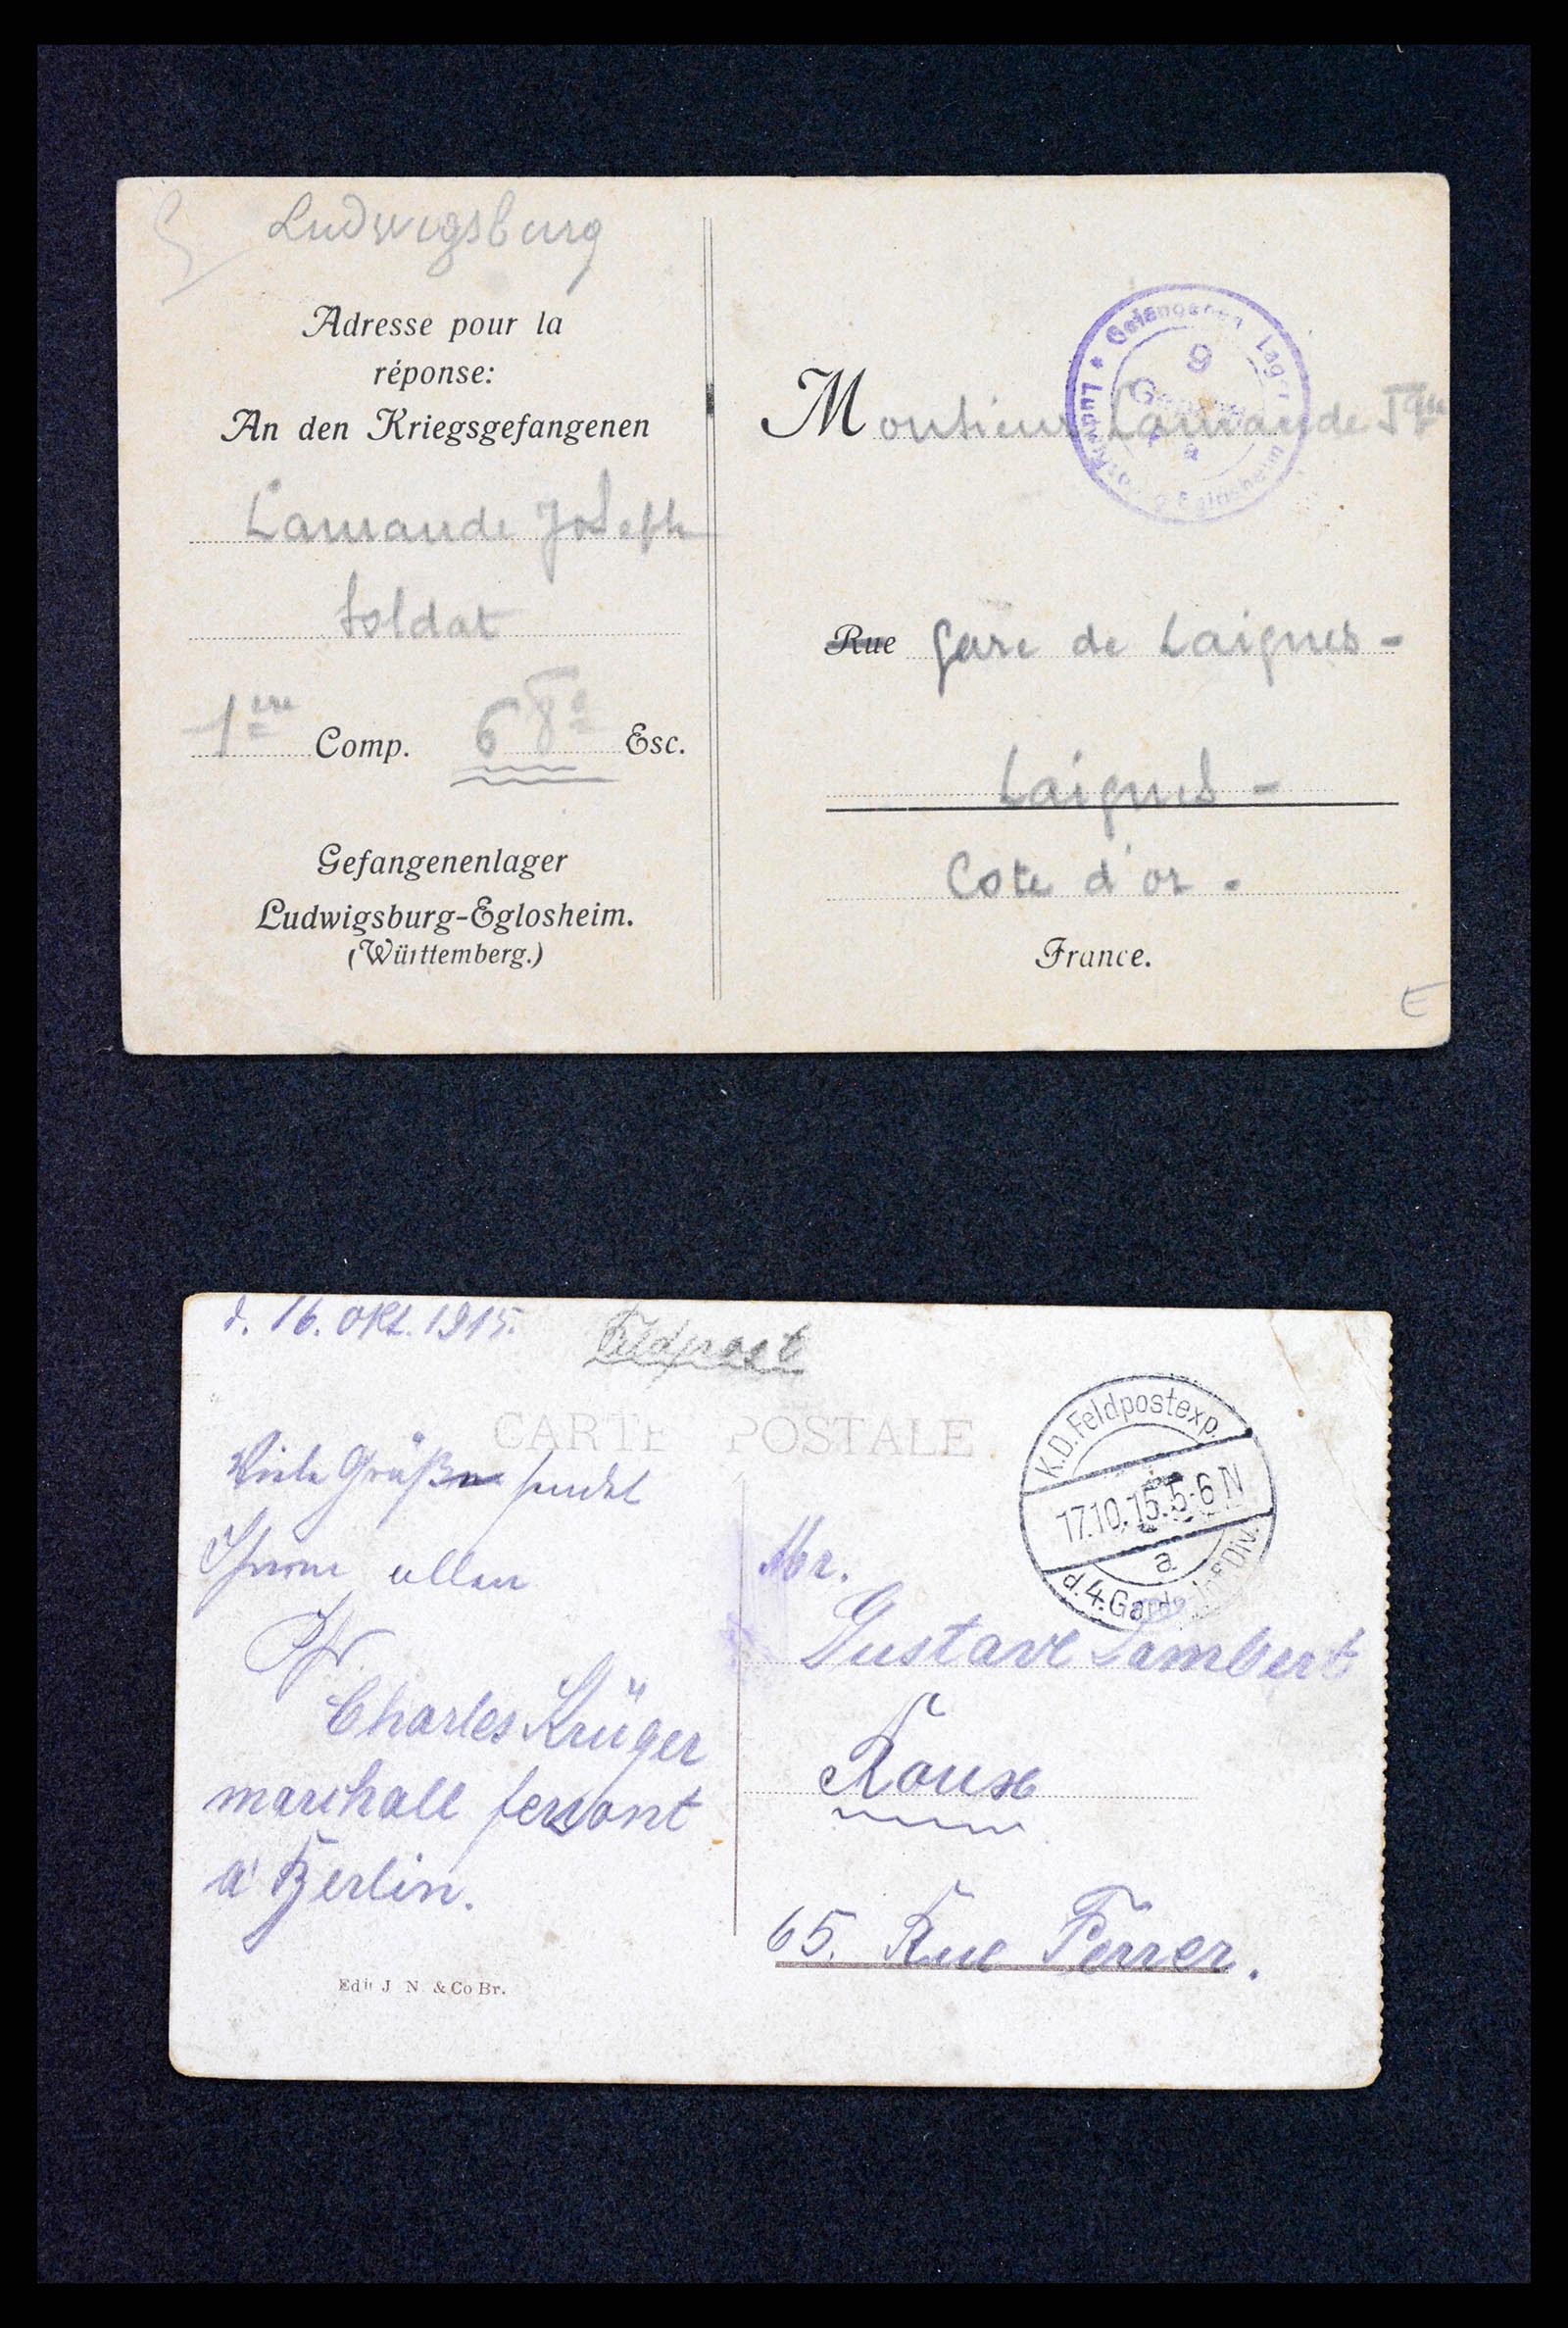 Ludwigsburg
Adresse pour la
réponse:
An den Kriegsgefangenen
Lamande Joseph
Soldat
1ère Comp. 68e Esc.
Gefangenenlager
Ludwigsburg-Eglosheim.
(Württemberg.)
Gefangenen Lager
9
Monsieur Lamande
Rue Gare de Laignes -
Laignes -
Cote d'or.
France.
E
d. 16. Okt. 1915.
Feldpost
CARTE POSTALE
Viele Grüße sendet
Ihnen allen
Ihr
Charles Krüger
marchall ferront
à Berlin.
Edit J N & Co Br.
K.D. Feldpostexp.
17.10.15.5-6 N
a
d. 4. Garde Inf Div.
Mr.
Gustave Lambert
Roux
65. Rue Ferrer.